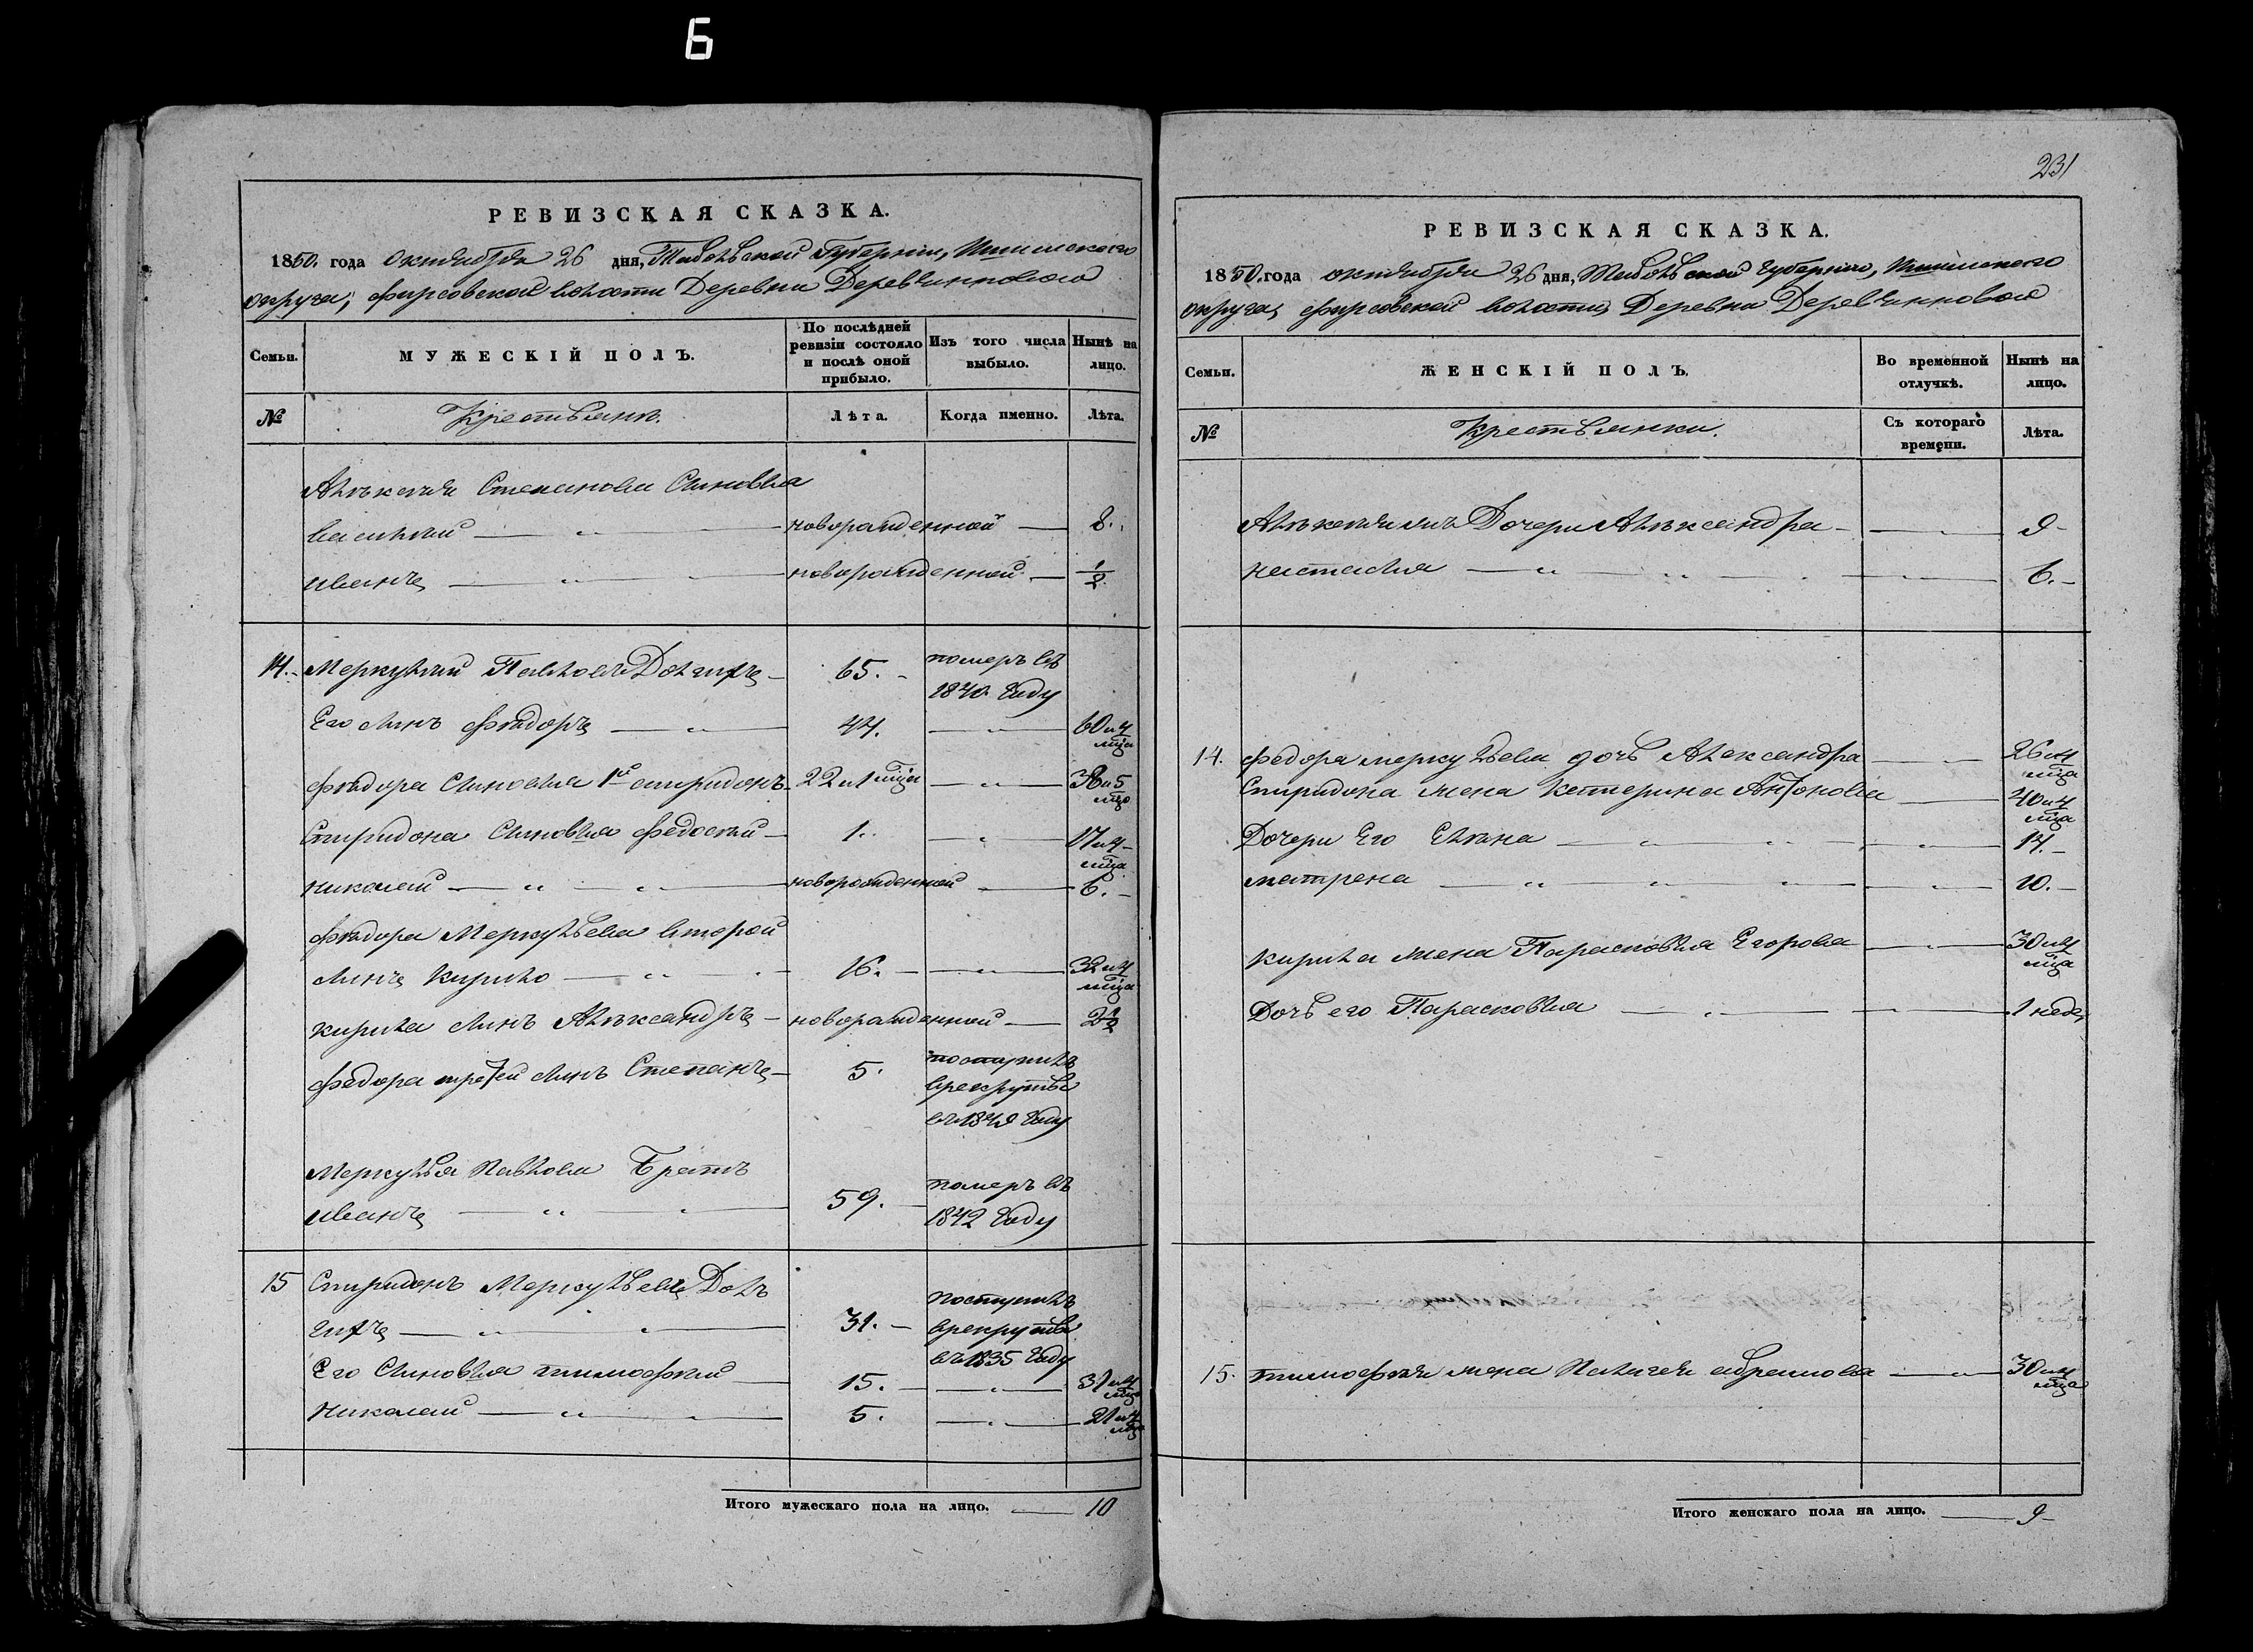 Б
РЕВИЗСКАЯ СКАЗКА.
1850. года октября 26 дня, Тобольской Губернии, Ишимского
округа, фирсовской волости Деревни Деревянновой
Семьи. МУЖЕСКІЙ ПОЛЪ. По послѣдней ревизіи состояло и послѣ оной прибыло. Изъ того числа выбыло. Нынѣ на лицо.
№ Крестьянъ. Лѣта. Когда именно. Лѣта.
Алѣксѣя Степанова Сыновья
василей — новорожденной — 8.
иванъ — новорожденной — 1/2
14. Меркулий Павловъ Долгихъ 65. померъ въ
1840. Году
Его сынъ фѣдоръ — 44. — 60 и 4
мца
фѣдора Сыновья 1й спиридонъ 22 и 1 мца — 38 и 5
мцо
Спиридона Сыновья федосѣй — 1. — 17 и 4
мца
николай — новорожденной — 6.
фѣдора Меркульева второй
сынъ Кирило — 16. — 32 и 4
мца
кирила сынъ Алѣксандръ — новорожденной — 2 1/2
фѣдора третей сынъ Степанъ — 5. поступилъ
врекруты
въ 1849 Году
Меркулья Павлова Братъ
иванъ — 59. померъ въ
1842 Году
15 Спиридонъ Меркульевъ Дол
гихъ — 31. поступилъ
врекруты
въ 1835 Году
Его Сыновья тимофѣй 15. — 31 и 4
мца
Николай — 5. — 21 и 4
мца
Итого мужескаго пола на лицо. — 10
231
РЕВИЗСКАЯ СКАЗКА.
1850. года октября 26 дня, Тобольской Губернии, Ишимского
округа, фирсовской волости, Деревни Деревянновой
Семьи. ЖЕНСКІЙ ПОЛЪ. Во временной отлучкѣ. Нынѣ на лицо.
№ Крестьянки. Съ котораго времени. Лѣта.
Дочери Алѣксандра — 9
настасья — 6.
14. федора меркульева дочь Александра — 26 и 4
мца
Спиридона жена Катерина Антонова — 40 и 4
мца
Дочери Его Елѣна — 14.
матрена — 10.
кирила жена Парасковья Егорова — 30 и 4
мца
Дочь его Парасковья — 1 неде
15. тимофѣя жена Палагея абрамова — 30 и 4
мца
Итого женскаго пола на лицо. — 9